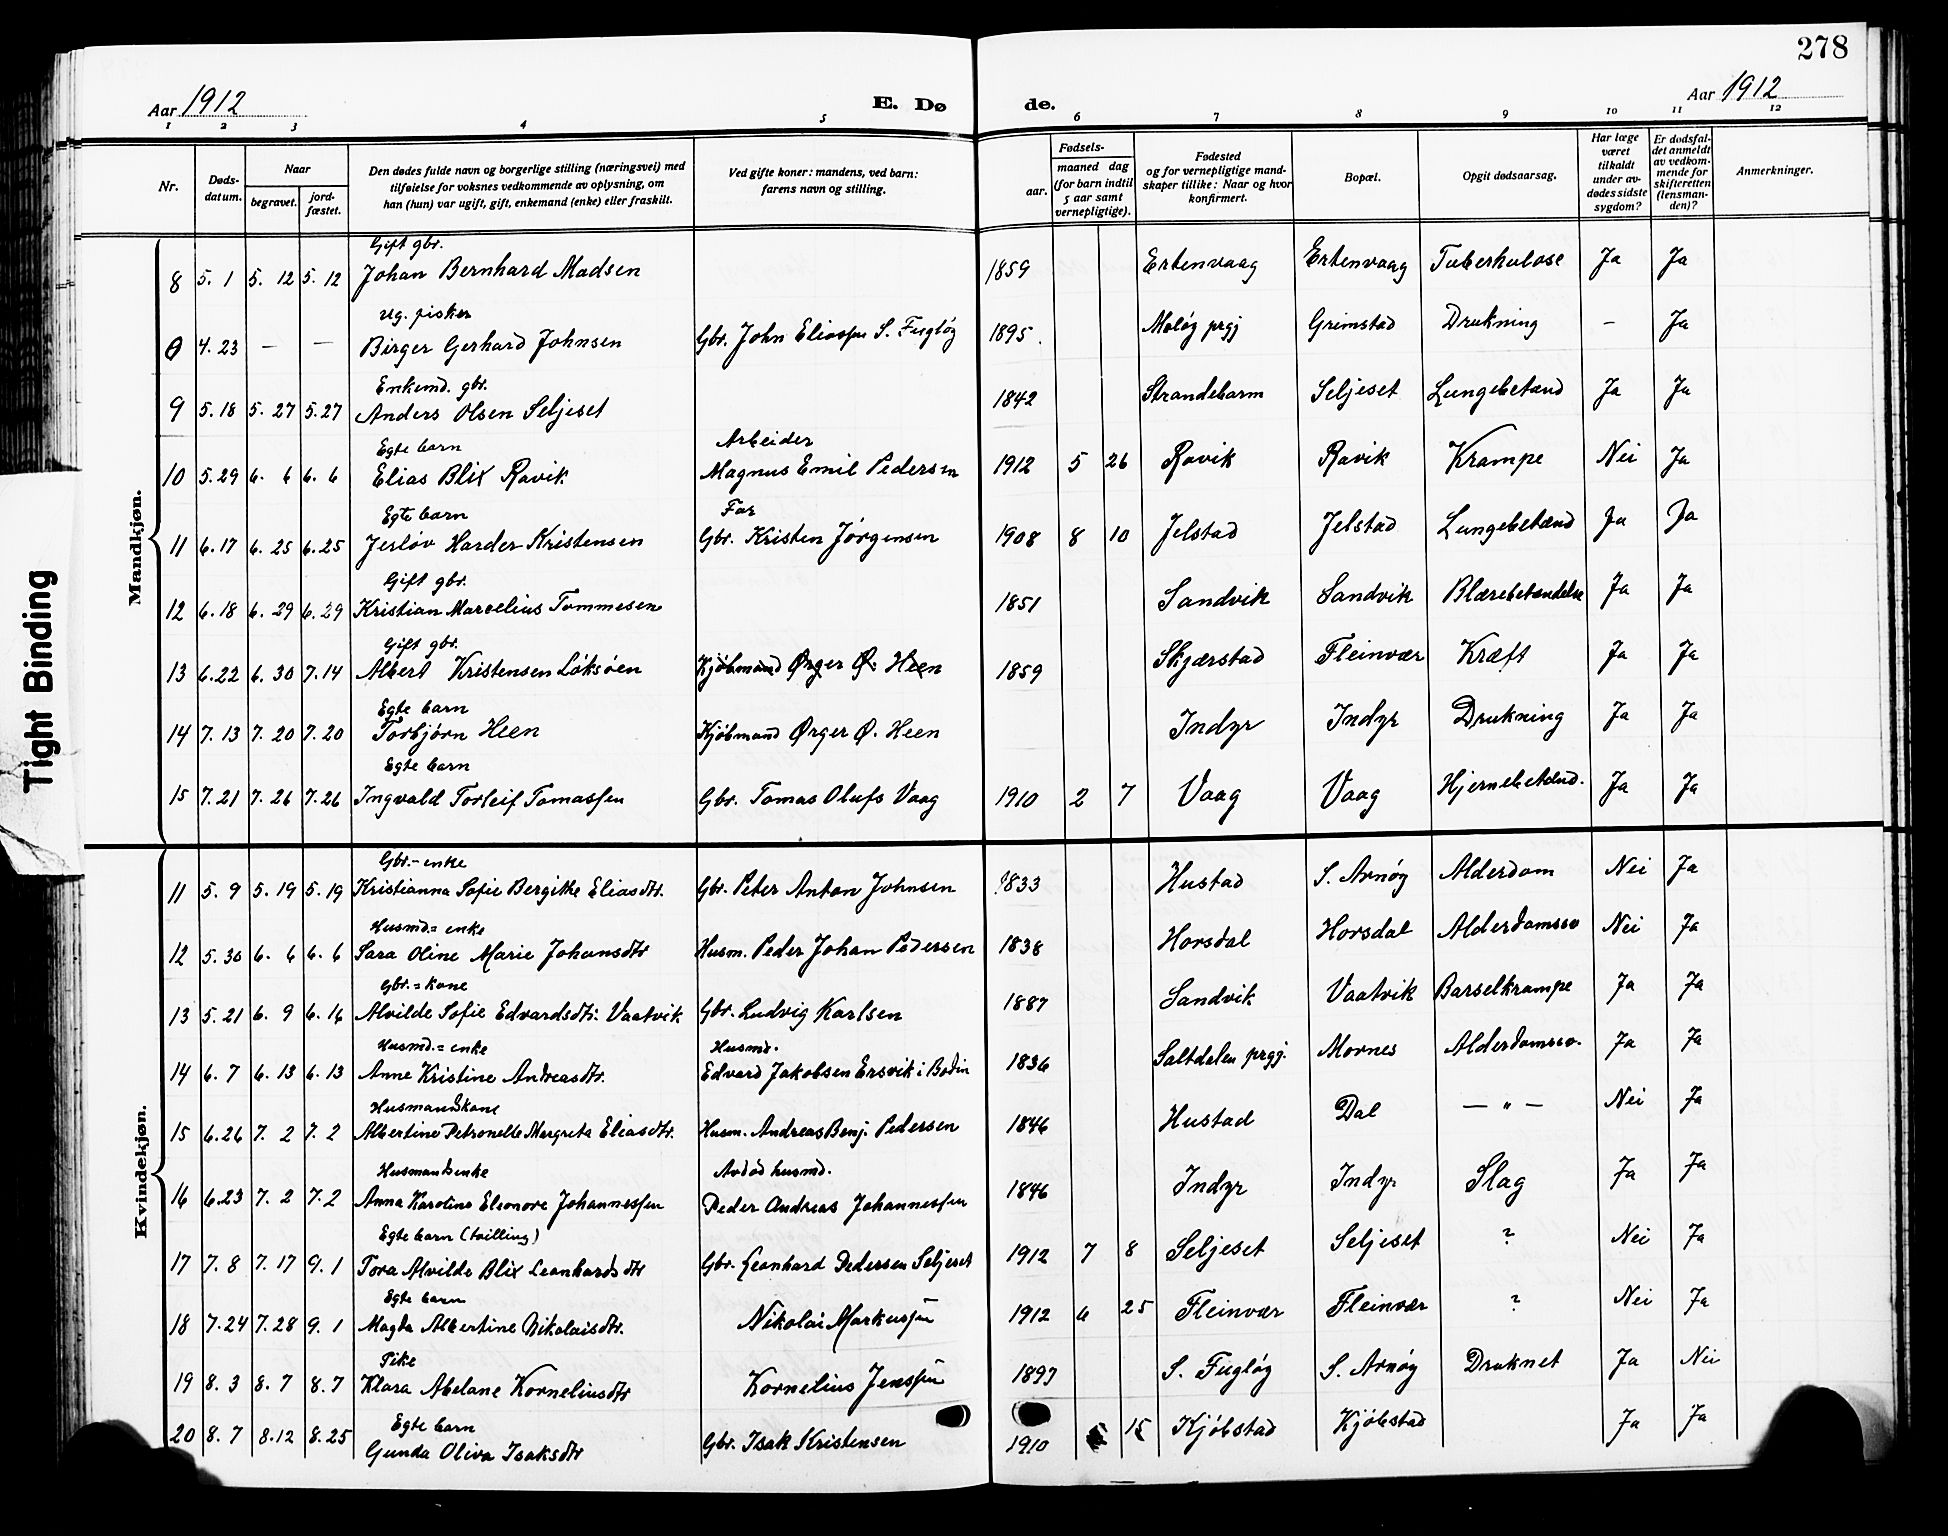 278
Aar 1912
E. Dø de.
Aar 1912
1 2 3 4 5 6 7 8 9 10 11 12
Nr.
Døds-datum.
Naar
begravet.
jord-fæstet.
Den dødes fulde navn og borgerlige stilling (næringsvei) med
tilføielse for voksnes vedkommende av oplysning, om
han (hun) var ugift, gift, enkemand (enke) eller fraskilt.
Ved gifte koner: mandens, ved barn:
farens navn og stilling.
Fødsels-
aar.
maaned dag
(for barn indtil
5 aar samt
vernepligtige).
Fødested
og for vernepligtige mand-
skaper tillike: Naar og hvor
konfirmert.
Bopæl.
Opgit dødsaarsag.
Har læge
været
tilkaldt
under av-
dødes sidste
sygdom?
Er dødsfal-
det anmeldt
av vedkom-
mende for
skifteretten
(lensman-
den)?
Anmerkninger.
Mandkjøn.
Gift gbr.
8 5. 1 5. 12 5. 12 Johan Bernhard Madsen 1859 Ertenvaag Ertenvaag Tuberkulose Ja Ja
Ug. fisker
0 4. 23 — — Birger Gerhard Johnsen Gbr. John Eliassen S. Fugløy 1895. Meløy prgj Grimstad Drukning - Ja
Enkemd. gbr.
9 5. 18 5. 27 5. 27 Anders Olsen Seljeset 1842 Strandebarm Seljeset Lungebetænd Ja Ja
Egte barn Arbeider
10 5. 29 6. 6 6. 6 Elias Blix Ravik Magnus Emil Pedersen 1912 5 26 Ravik Ravik Krampe Nei Ja
Egte barn Far
11 6. 17 6. 25 6. 25 Jerlov Harder Kristensen Gbr. Kristen Jørgensen 1908 8 10 Jelstad Jelstad Lungebetænd Ja Ja
Gift gbr.
12 6. 18 6. 29 6. 29 Kristian Marselius Tommesen 1851 Sandvik Sandvik Blærebetændelse Ja Ja
Gift gbr.
13 6. 22 6. 30 7. 14 Albert Kristensen Løksøen Kjøbmand Ørger Ø. Heen 1859 Skjærstad Fleinvær Kræft Ja Ja
Egte barn
14 7. 13 7. 20 7. 20 Torbjørn Heen Kjøbmand Ørger Ø. Heen Indyr Indyr Drukning Ja Ja
Egte barn
15 7. 21 7. 26 7. 26 Ingvald Torleif Tomassen Gbr. Tomas Olufs Vaag 1910 2 7 Vaag Vaag Hjernebetænd. Ja Ja
Kvindekjøn.
Gbr.-enke
11 5. 9 5. 19 5. 19 Kristianna Sofie Bergitte Eliasdtr. Gbr. Peter Anton Johnsen 1833 Hustad S. Arnøy Alderdom Nei Ja
Husmd.= enke
12 5. 30 6. 6 6. 6 Sara Oline Marie Johansdtr Husm. Peder Johan Pedersen 1838 Horsdal Horsdal Alderdomssv Nei Ja
Gbr.= kone
13 5. 21 6. 9 6. 16 Alvilde Sofie Edvardsdtr. Vaatvik Gbr. Ludvig Karlsen 1887 Sandvik Vaatvik Barselkrampe Ja Ja
Husmd.= enke Husmd.
14 6. 7 6. 13 6. 13 Anne Kristine Andreasdtr. Edvard Jakobsen Ersvik i Bodin 1836 Saltdalen prgj. Mornes Alderdomssv. Ja Ja
Husmandskone
15 6. 26 7. 2 7. 2 Albertine Petronelle Margreta Eliasdtr. Husm. Andreas Benj. Pedersen 1846 Hustad Dal — " — Nei Ja
Husmandsenke Avdød husmd.
16 6. 23 7. 2 7. 2 Anna Karoline Eleonore Johannessen Peder Andreas Johannessen 1846 Indyr Indyr Slag Ja Ja
Egte barn (tvilling)
17 7. 8 7. 17 9. 1 Tora Alvilde Blix Leonhardsdtr Gbr. Leonhard Pedersen Seljeset 1912 7 8 Seljeset Seljeset ? Nei Ja
Egte barn
18 7. 24 7. 28 9. 1 Magda Albertine Nikolaisdtr. Nikolai Markussen 1912 6 25 Fleinvær Fleinvær ? Nei Ja
Pike
19 8. 3 8. 7 8. 7 Klara Abelane Korneliusdtr Kornelius Jenssen 1897 S. Fugløy S. Arnøy Druknet Ja Nei
Egte barn
20 8. 7 8. 12 8. 25 Gunda Oliva Isaksdtr Gbr. Isak Kristensen 1910 15 Kjøbstad Kjøbstad Ja Ja
Tight Binding